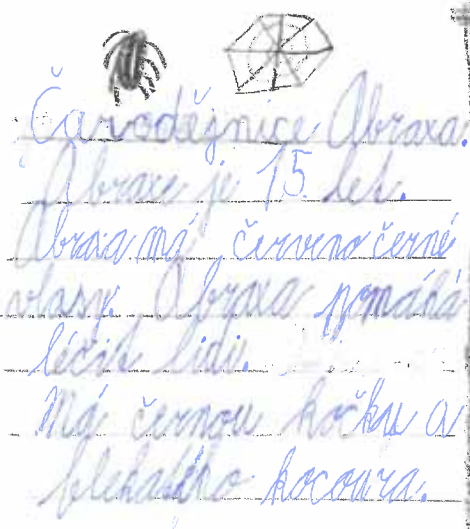 Čarodějnice Abraxa.
Abraxe je 15 let.
Abraxa má červeno černé
vlasy. Abraxa pomáhá
léčit lidi.
Má černou kočku a
blekatého kocoura.